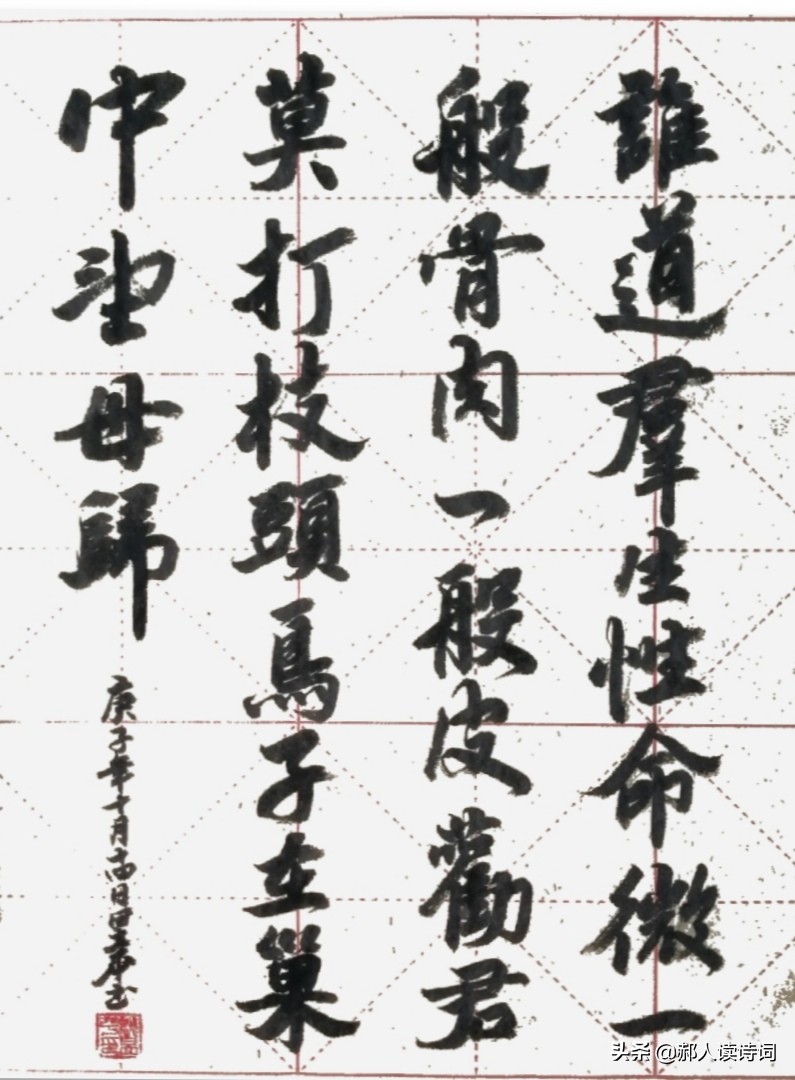 誰道羣生性命微一
般骨肉一般皮勸君
莫打枝頭鳥子在巢
中望母歸
庚子年十月十四日
头条 @郝人读诗词